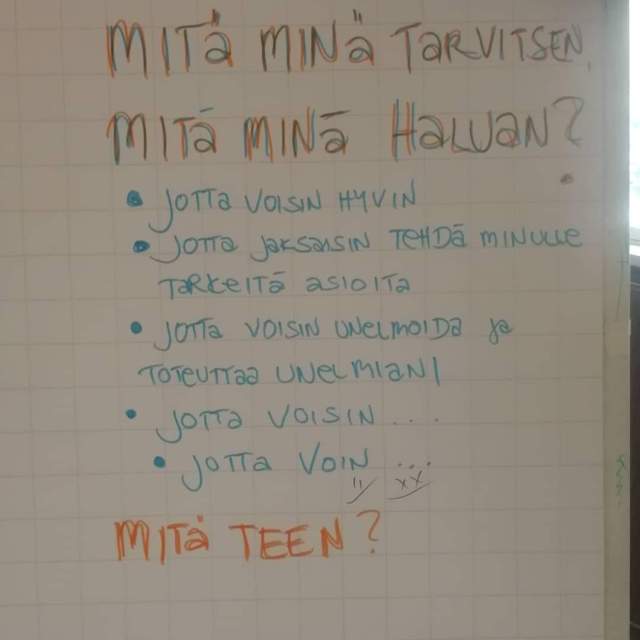 MITÄ MINÄ TARVITSEN,
MITÄ MINÄ HALUAN?
• JOTTA VOISIN HYVIN
• JOTTA JAKSAISIN TEHDÄ MINULLE
TÄRKEITÄ ASIOITA
• JOTTA VOISIN UNELMOIDA JA
TOTEUTTAA UNELMIANI
• JOTTA VOISIN ....
• JOTTA VOIN ...
MITÄ TEEN?